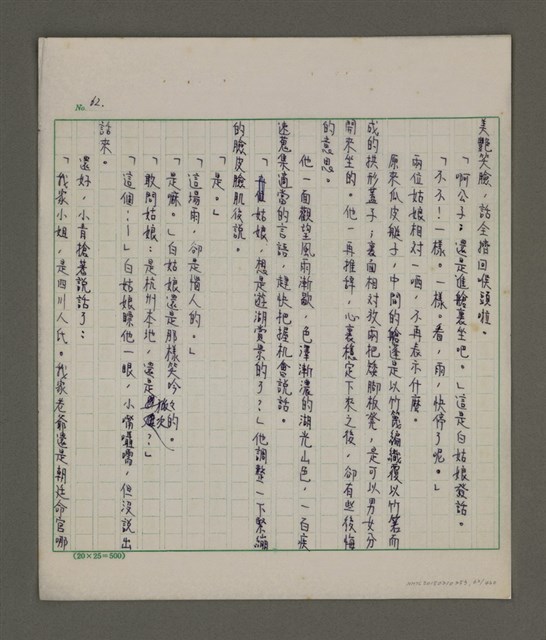 No. 62.
美艷笑臉，話全擋回喉頭啦。
「啊公子：還是進艙裏坐吧。」這是白姑娘發話。
「不不！一樣。一樣。看，雨，快停了呢。」
兩位姑娘相對一哂，不再表示什麼。
原來瓜皮艇子，中間的艙篷是以竹篾編織覆以竹箬而
成的拱形蓋子；裏面相對放兩把矮腳板凳，是可以男女分
開來坐的。他一再推辭，心裏穩定下來之後，卻有些後悔
的意思。
他一面觀望風雨漸歇，色澤漸濃的湖光山色，一面疾
速蒐集適當的言語，趕快把握机會說話。
「兩位姑娘，想是遊湖賞景的了？」他調整一下緊繃
的臉皮臉肌後說。
「是。」
「這場雨，卻是惱人的。」
「是嘛。」白姑娘還是那樣笑吟吟的。
「敢問姑娘：是杭州本地，還是 ？」
「這個：—」白姑娘瞟他一眼，小嘴囁嚅，但沒說出
話來。
還好，小青搶著說話了：
「我家小姐，是四川人氏。我家老爺還是朝廷命官哪
(20×25=500)